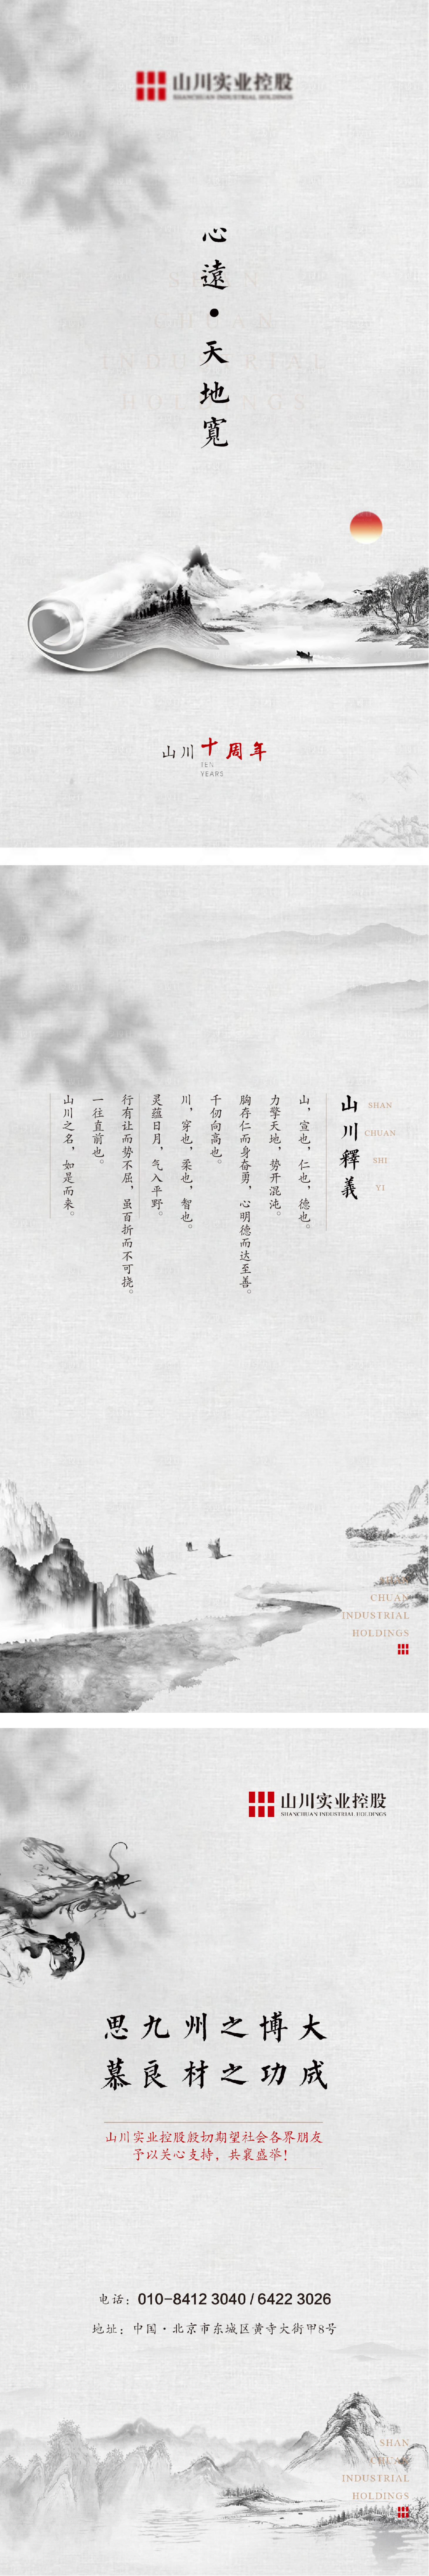 山川实业控股
SHANCHUAN INDUSTRIAL HOLDINGS
心遠•天地寬
山川十周年
TEN
YEARS
山川釋義
SHAN
CHUAN
SHI
YI
山，宣也，仁也，德也。
力擎天地，势开混沌。
胸存仁而身奋勇，心明德而达至善。
千仞向高也。
川，穿也，柔也，智也。
灵蕴日月，气入平野。
行有让而势不屈，虽百折而不可挠。
一往直前也。
山川之名，如是而来。
CHUAN
INDUSTRIAL
HOLDINGS
山川实业控股
SHANCHUAN INDUSTRIAL HOLDINGS
思九州之博大
慕良材之功成
山川实业控股殷切期望社会各界朋友
予以关心支持，共襄盛举！
电话：010-8412 3040 / 6422 3026
地址：中国·北京市东城区黄寺大街甲8号
SHAN
CHUAN
INDUSTRIAL
HOLDINGS